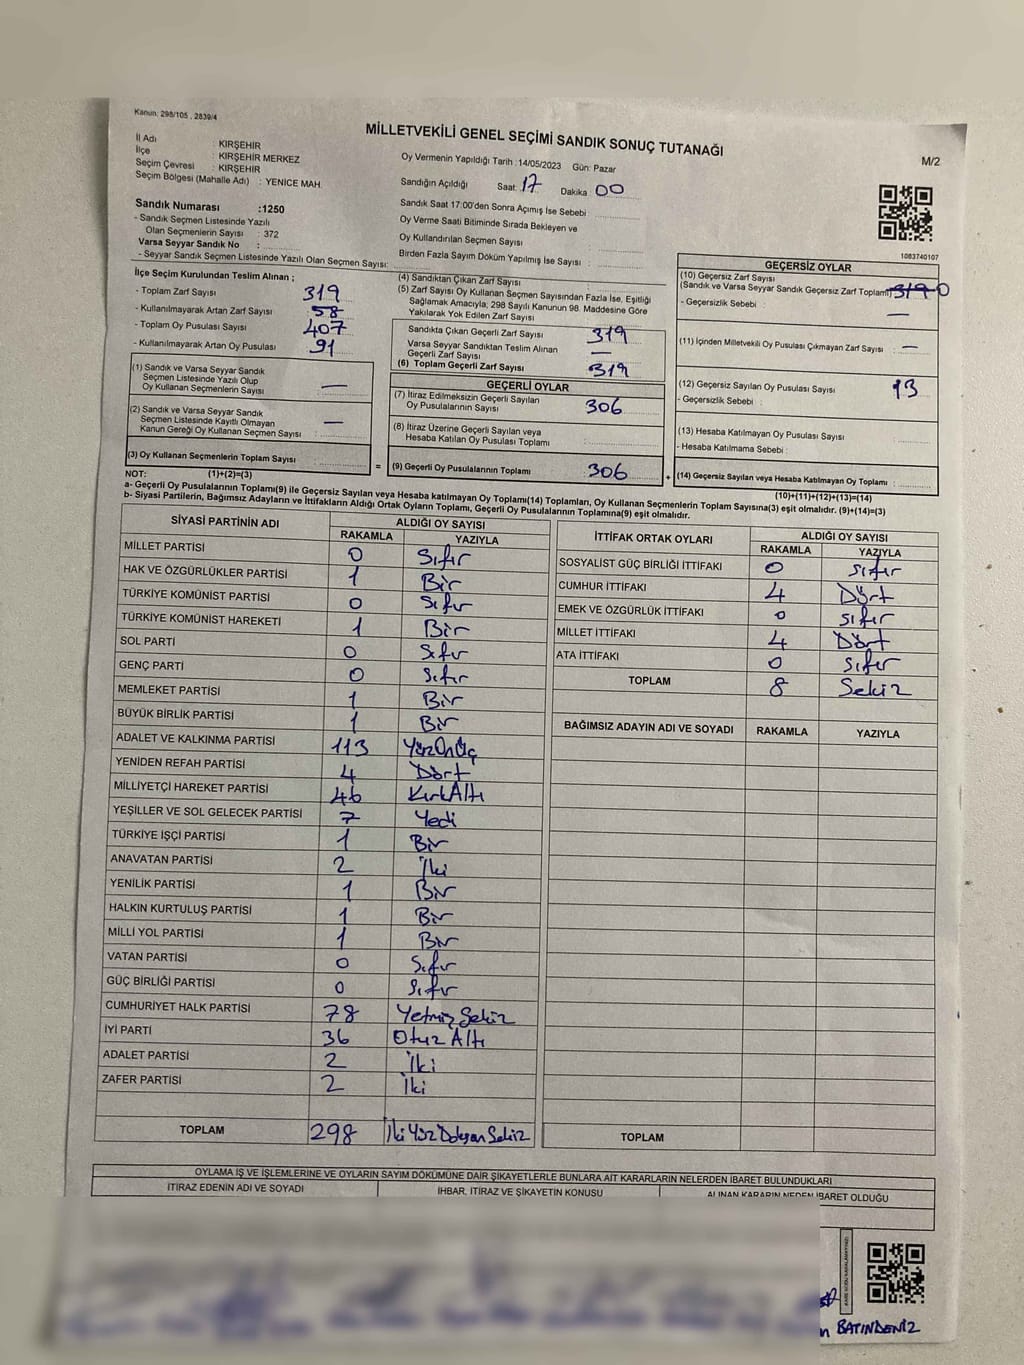 Kanun: 298/105 , 2839/4
MİLLETVEKİLİ GENEL SEÇİMİ SANDIK SONUÇ TUTANAĞI
M/2
İl Adı : KIRŞEHİR
İlçe : KIRŞEHİR MERKEZ
Seçim Çevresi : KIRŞEHİR
Seçim Bölgesi (Mahalle Adı) : YENİCE MAH.
Oy Vermenin Yapıldığı Tarih :14/05/2023 Gün: Pazar
Sandığın Açıldığı Saat: 17 Dakika 00
Sandık Saat 17:00'den Sonra Açımış İse Sebebi :
Oy Verme Saati Bitiminde Sırada Bekleyen ve
Oy Kullandırılan Seçmen Sayısı :
Birden Fazla Sayım Döküm Yapılmış İse Sayısı :
Sandık Numarası :1250
- Sandık Seçmen Listesinde Yazılı
Olan Seçmenlerin Sayısı : 372
Varsa Seyyar Sandık No :
- Seyyar Sandık Seçmen Listesinde Yazılı Olan Seçmen Sayısı:
1083740107
İlçe Seçim Kurulundan Teslim Alınan ;
- Toplam Zarf Sayısı 319
- Kullanılmayarak Artan Zarf Sayısı 58
- Toplam Oy Pusulası Sayısı 407
- Kullanılmayarak Artan Oy Pusulası 91
(1) Sandık ve Varsa Seyyar Sandık
Seçmen Listesinde Yazılı Olup
Oy Kullanan Seçmenlerin Sayısı : —
(2) Sandık ve Varsa Seyyar Sandık
Seçmen Listesinde Kayıtlı Olmayan
Kanun Gereği Oy Kullanan Seçmen Sayısı : —
(3) Oy Kullanan Seçmenlerin Toplam Sayısı
(1)+(2)=(3)
(4) Sandıktan Çıkan Zarf Sayısı :
(5) Zarf Sayısı Oy Kullanan Seçmen Sayısından Fazla İse, Eşitliği
Sağlamak Amacıyla; 298 Sayılı Kanunun 98. Maddesine Göre
Yakılarak Yok Edilen Zarf Sayısı :
Sandıkta Çıkan Geçerli Zarf Sayısı 319
Varsa Seyyar Sandıktan Teslim Alınan
Geçerli Zarf Sayısı —
(6) Toplam Geçerli Zarf Sayısı 319
GEÇERLİ OYLAR
(7) İtiraz Edilmeksizin Geçerli Sayılan
Oy Pusulalarının Sayısı 306
(8) İtiraz Üzerine Geçerli Sayılan veya
Hesaba Katılan Oy Pusulası Toplamı
= (9) Geçerli Oy Pusulalarının Toplamı 306 +
GEÇERSİZ OYLAR
(10) Geçersiz Zarf Sayısı
(Sandık ve Varsa Seyyar Sandık Geçersiz Zarf Toplamı) 319 0
- Geçersizlik Sebebi : —
(11) İçinden Milletvekili Oy Pusulası Çıkmayan Zarf Sayısı : —
(12) Geçersiz Sayılan Oy Pusulası Sayısı 13
- Geçersizlik Sebebi :
(13) Hesaba Katılmayan Oy Pusulası Sayısı :
- Hesaba Katılmama Sebebi :
(14) Geçersiz Sayılan veya Hesaba Katılmayan Oy Toplamı :
(10)+(11)+(12)+(13)=(14)
NOT:
a- Geçerli Oy Pusulalarının Toplamı(9) ile Geçersiz Sayılan veya Hesaba katılmayan Oy Toplamı(14) Toplamları, Oy Kullanan Seçmenlerin Toplam Sayısına(3) eşit olmalıdır. (9)+(14)=(3)
b- Siyasi Partilerin, Bağımsız Adayların ve İttifakların Aldığı Ortak Oyların Toplamı, Geçerli Oy Pusulalarının Toplamına(9) eşit olmalıdır.
SİYASİ PARTİNİN ADI ALDIĞI OY SAYISI
RAKAMLA YAZIYLA
MİLLET PARTİSİ 0 Sıfır
HAK VE ÖZGÜRLÜKLER PARTİSİ 1 Bir
TÜRKİYE KOMÜNİST PARTİSİ 0 Sıfır
TÜRKİYE KOMÜNİST HAREKETİ 1 Bir
SOL PARTİ 0 Sıfır
GENÇ PARTİ 0 Sıfır
MEMLEKET PARTİSİ 1 Bir
BÜYÜK BİRLİK PARTİSİ 1 Bir
ADALET VE KALKINMA PARTİSİ 113 YüzOnÜç
YENİDEN REFAH PARTİSİ 4 Dört
MİLLİYETÇİ HAREKET PARTİSİ 46 KırkAltı
YEŞİLLER VE SOL GELECEK PARTİSİ 7 Yedi
TÜRKİYE İŞÇİ PARTİSİ 1 Bir
ANAVATAN PARTİSİ 2 İki
YENİLİK PARTİSİ 1 Bir
HALKIN KURTULUŞ PARTİSİ 1 Bir
MİLLİ YOL PARTİSİ 1 Bir
VATAN PARTİSİ 0 Sıfır
GÜÇ BİRLİĞİ PARTİSİ 0 Sıfır
CUMHURİYET HALK PARTİSİ 78 Yetmiş Sekiz
İYİ PARTİ 36 Otuz Altı
ADALET PARTİSİ 2 İki
ZAFER PARTİSİ 2 İki
TOPLAM 298 İki Yüz Doksan Sekiz
İTTİFAK ORTAK OYLARI ALDIĞI OY SAYISI
RAKAMLA YAZIYLA
SOSYALİST GÜÇ BİRLİĞİ İTTİFAKI 0 Sıfır
CUMHUR İTTİFAKI 4 Dört
EMEK VE ÖZGÜRLÜK İTTİFAKI 0 Sıfır
MİLLET İTTİFAKI 4 Dört
ATA İTTİFAKI 0 Sıfır
TOPLAM 8 Sekiz
BAĞIMSIZ ADAYIN ADI VE SOYADI RAKAMLA YAZIYLA
TOPLAM
OYLAMA İŞ VE İŞLEMLERİNE VE OYLARIN SAYIM DÖKÜMÜNE DAİR ŞİKAYETLERLE BUNLARA AİT KARARLARIN NELERDEN İBARET BULUNDUKLARI
İTİRAZ EDENİN ADI VE SOYADI İHBAR, İTİRAZ VE ŞİKAYETİN KONUSU ALINAN KARARIN NEDEN İBARET OLDUĞU
BATINDENİZ